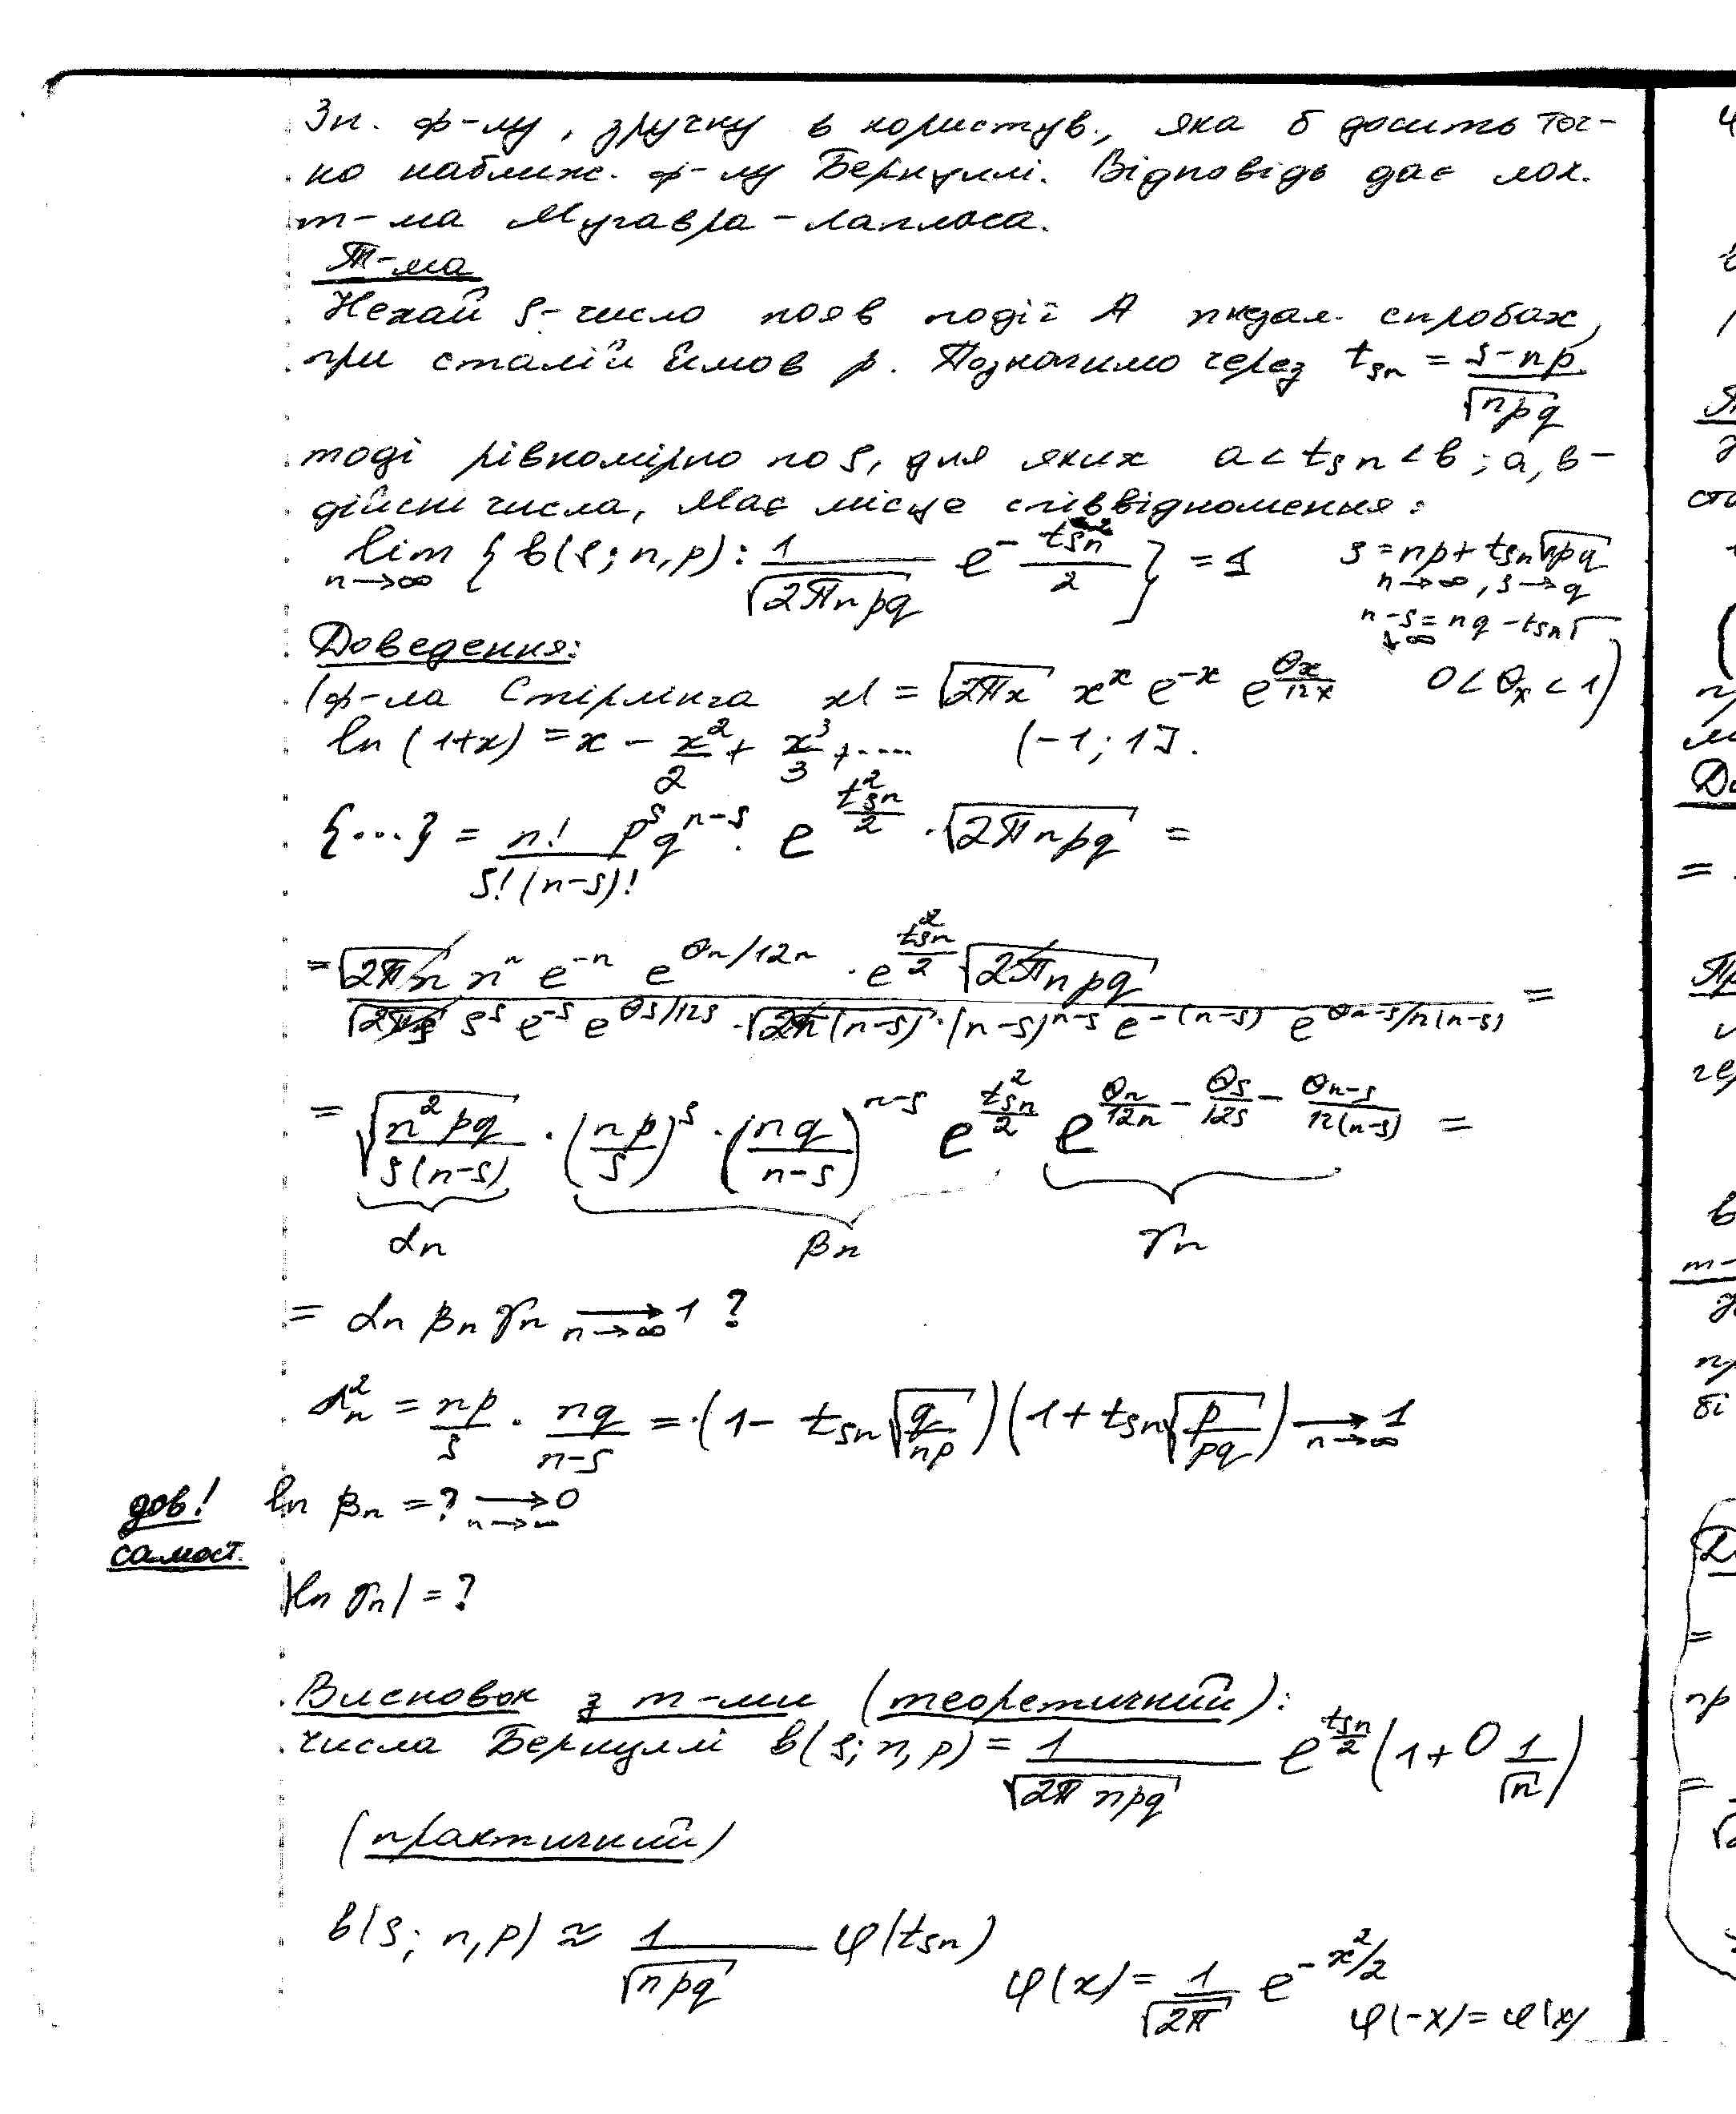 Зн. ф-лу, зручну в користув., яка б досить точ-
но наближ. ф-лу Бернуллі. Відповідь дає лок.
т-ма Муавра-Лапласа.
Т-ма
Нехай s-число появ події А n незал. спробах,
при сталій ймов p. Позначимо через t_{sn} = \frac{s-np}{\sqrt{npq}}
тоді рівномірно по s, для яких a < t_{sn} < b; a, b-
дійсні числа, має місце співвідношення:
lim_{n→∞} { b(s; n, p) : \frac{1}{\sqrt{2πnpq}} e^{-\frac{t_{sn}^2}{2}} } = 1
s = np + t_{sn}\sqrt{npq}
n→∞, s→q
n-s = nq - t_{sn}√
↓∞
Доведення:
(ф-ла Стірлінга x! = \sqrt{2πx} x^x e^{-x} e^{\frac{θ_x}{12x}} 0 < θ_x < 1)
ln (1+x) = x - \frac{x^2}{2} + \frac{x^3}{3} + .... (-1; 1].
{...} = \frac{n!}{s!(n-s)!} p^s q^{n-s} · e^{\frac{t_{sn}^2}{2}} · \sqrt{2πnpq} =
= \frac{\sqrt{2πn} n^n e^{-n} e^{θ_n/12n} · e^{\frac{t_{sn}^2}{2}} \sqrt{2πnpq}}{\sqrt{2πs} s^s e^{-s} e^{θ_s/12s} · \sqrt{2π(n-s)} · (n-s)^{n-s} e^{-(n-s)} e^{θ_{n-s}/12(n-s)}} =
= \sqrt{\frac{n^2pq}{s(n-s)}} · (\frac{np}{s})^s · (\frac{nq}{n-s})^{n-s} e^{\frac{t_{sn}^2}{2}} e^{\frac{θ_n}{12n} - \frac{θ_s}{12s} - \frac{θ_{n-s}}{12(n-s)}} =
α_n β_n γ_n
= α_n β_n γ_n →_{n→∞} 1 ?
α_n^2 = \frac{np}{s} · \frac{nq}{n-s} = (1 - t_{sn}\sqrt{\frac{q}{np}})(1 + t_{sn}\sqrt{\frac{p}{pq}}) →_{n→∞} 1
дов! ln β_n = ? →_{n→∞} 0
самост.
|ln γ_n| = ?
Висновок з т-ми (теоретичний):
числа Бернуллі b(s; n, p) = \frac{1}{\sqrt{2πnpq}} e^{\frac{t_{sn}}{2}} (1 + O \frac{1}{\sqrt{n}})
(практичний)
b(s; n, p) ≈ \frac{1}{\sqrt{npq}} φ(t_{sn})
φ(x) = \frac{1}{\sqrt{2π}} e^{-x^2/2}
φ(-x) = φ(x)